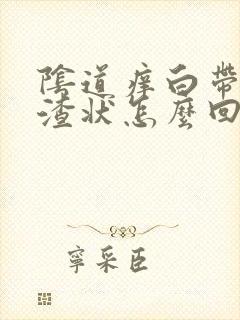 陰道痒白帶
渣状怎麼回
寧采臣